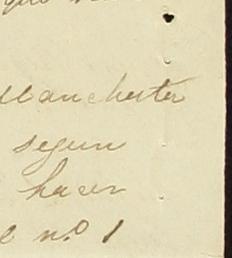 que
Manchester
segun
hacer
e no. 1